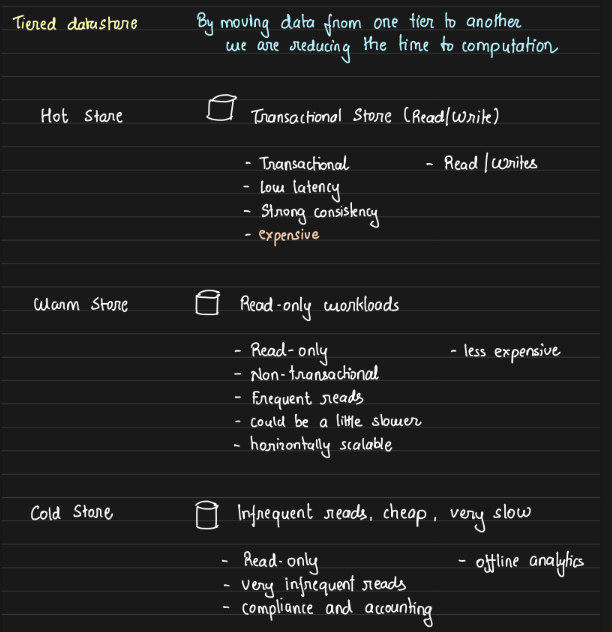 Tiered datastore
By moving data from one tier to another
we are reducing the time to computation
Hot Store
Transactional Store (Read/Write)
- Transactional
- Read/Writes
- Low latency
- Strong consistency
- expensive
Warm Store
Read-only workloads
- Read-only
- less expensive
- Non-transactional
- Frequent reads
- could be a little slower
- horizontally scalable
Cold Store
Infrequent reads, cheap, very slow
- Read-only
- offline analytics
- very infrequent reads
- compliance and accounting